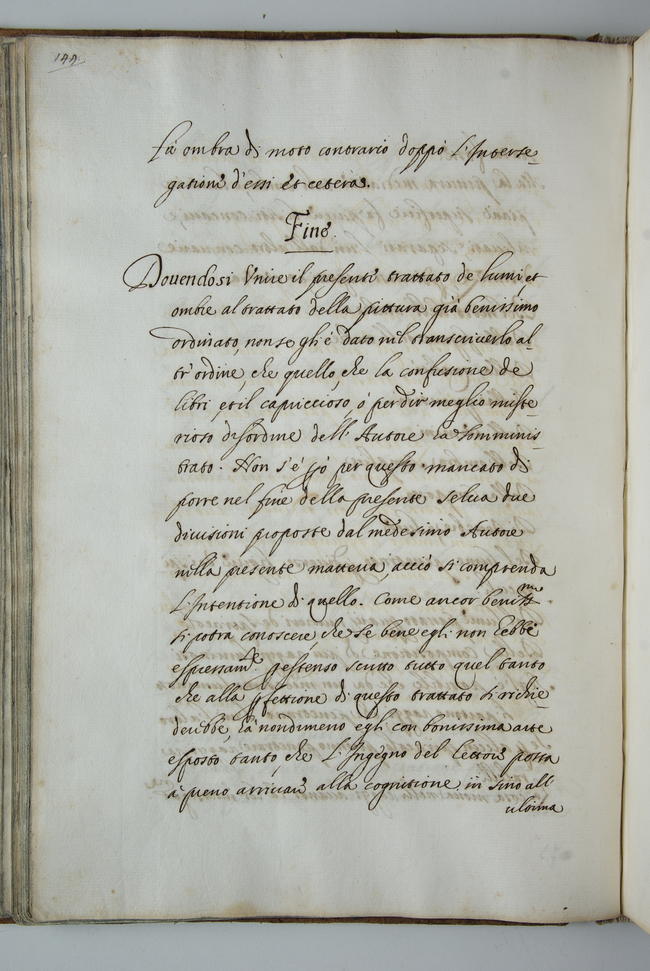 144.
fa' ombra di moto contrario doppo l'Interse-
gatione d'essi et cetera.
Fine.
Douendosi Vnire il presente trattato de lumi, et
ombre al trattato della pittura già benissimo
ordinato, non se gli è dato nel transcriuerlo al-
tr'ordine, che quello, che la confusione de
libri, et il capriccioso, ò per dir meglio miste-
rioso disordine dell'Autore ha somminis-
trato. Non s'è però per questo mancato di
porre nel fine della presente selua due
diuisioni proposte dal medesimo Autore
nella presente matteria, acciò si comprenda
l'Intentione di quello. Come ancor benissmo
si potrà conoscere, che se bene egli non hebbe
espressamte. perstenso scritto tutto quel tanto
che alla perfettione di questo trattato si richie-
derebbe, ha' nondimeno egli con bonissima arte
esposto tanto, che l'Ingegno del lettore possa
à pieno arriuare alla cognitione in sino all'
ultima